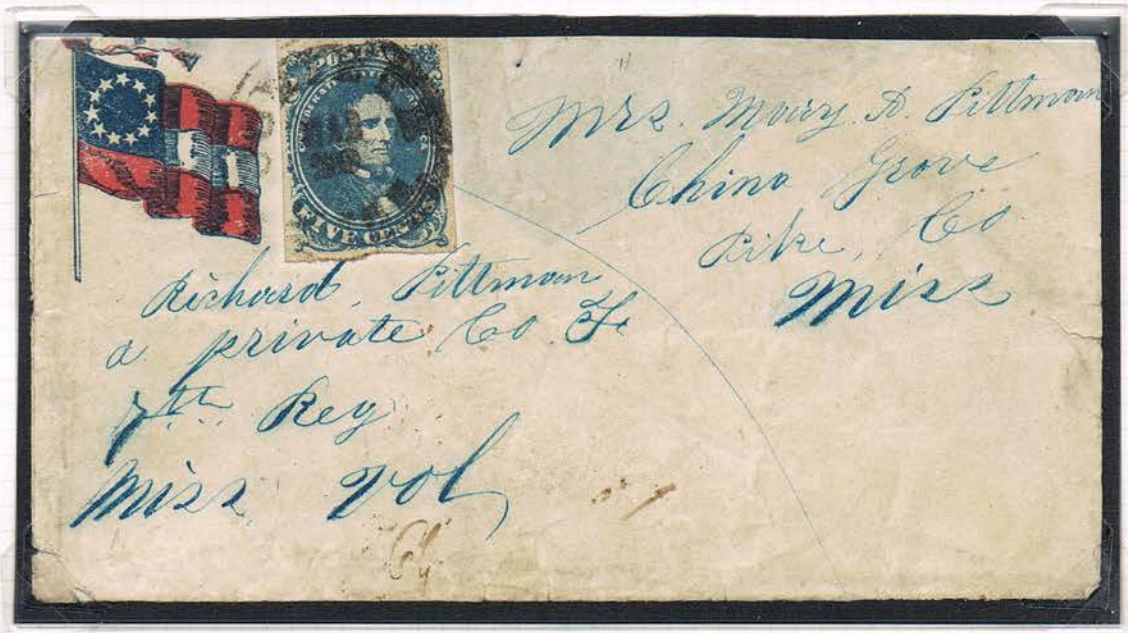 POSTAGE
FIVE CENTS
Mrs. Mary. D. Pittman
China Grove
Pike, Co
Miss
Richard, Pittman
a private Co. F.
7th Reg
Miss Vol